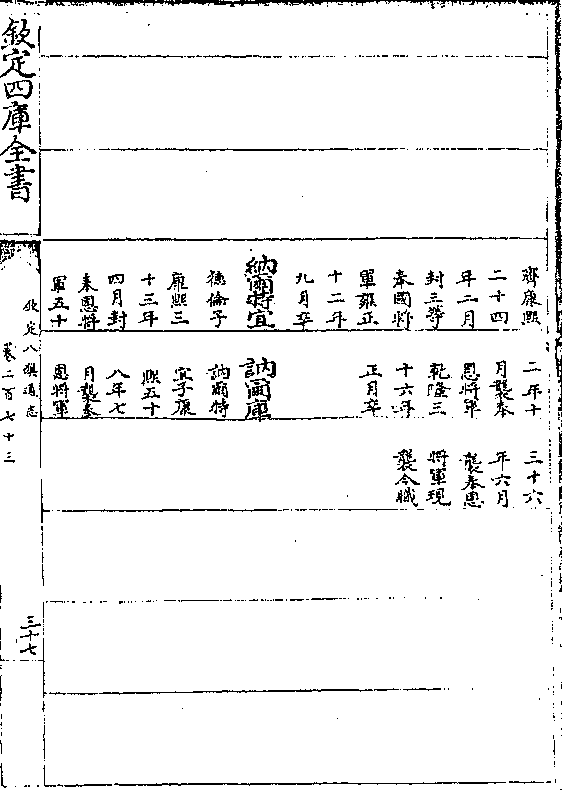 齊康熙
二十四
年二月
封三等
奉國將
軍雍正
十二年
九月卒
納爾特宜
德倫子
康熙三
十三年
四月封
奉恩將
軍五十
二年十
月襲奉
恩將軍
乾隆三
十六年
正月卒
訥爾庫
訥爾特
宜子康
熙五十
八年七
月襲奉
恩將軍
三十六
年六月
襲奉恩
將軍現
襲今職
欽定四庫全書
欽定八旗通志
卷二百七十三
三十七